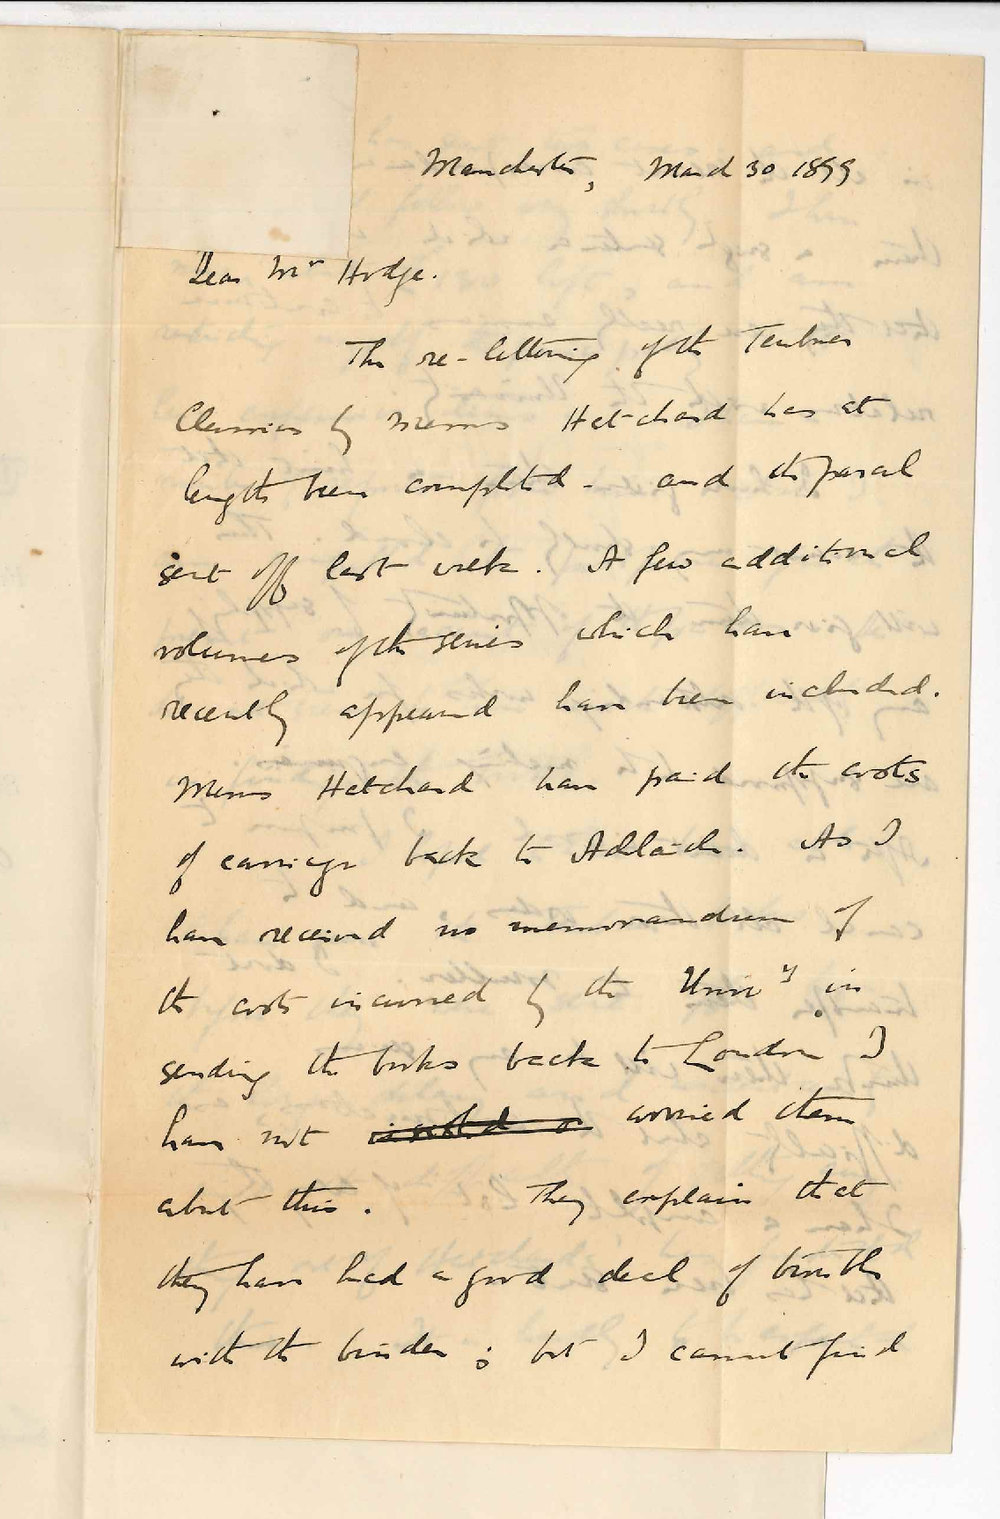 Manchester, March 30 1899
Dear Mr Hodge.
The re-lettering of the Teubner
Classics by Messrs Hatchard has at
length been completed - and the parcel
sent off last week. A few additional
volumes of the series which have
recently appeared have been included.
Messrs Hatchard have paid the costs
of carriage back to Adelaide. As I
have received no memorandum of
the costs incurred by the Univy in
sending the books back to London I
have not worried them
about this. They explain that
they have had a good deal of trouble
with the binder ; but I cannot find